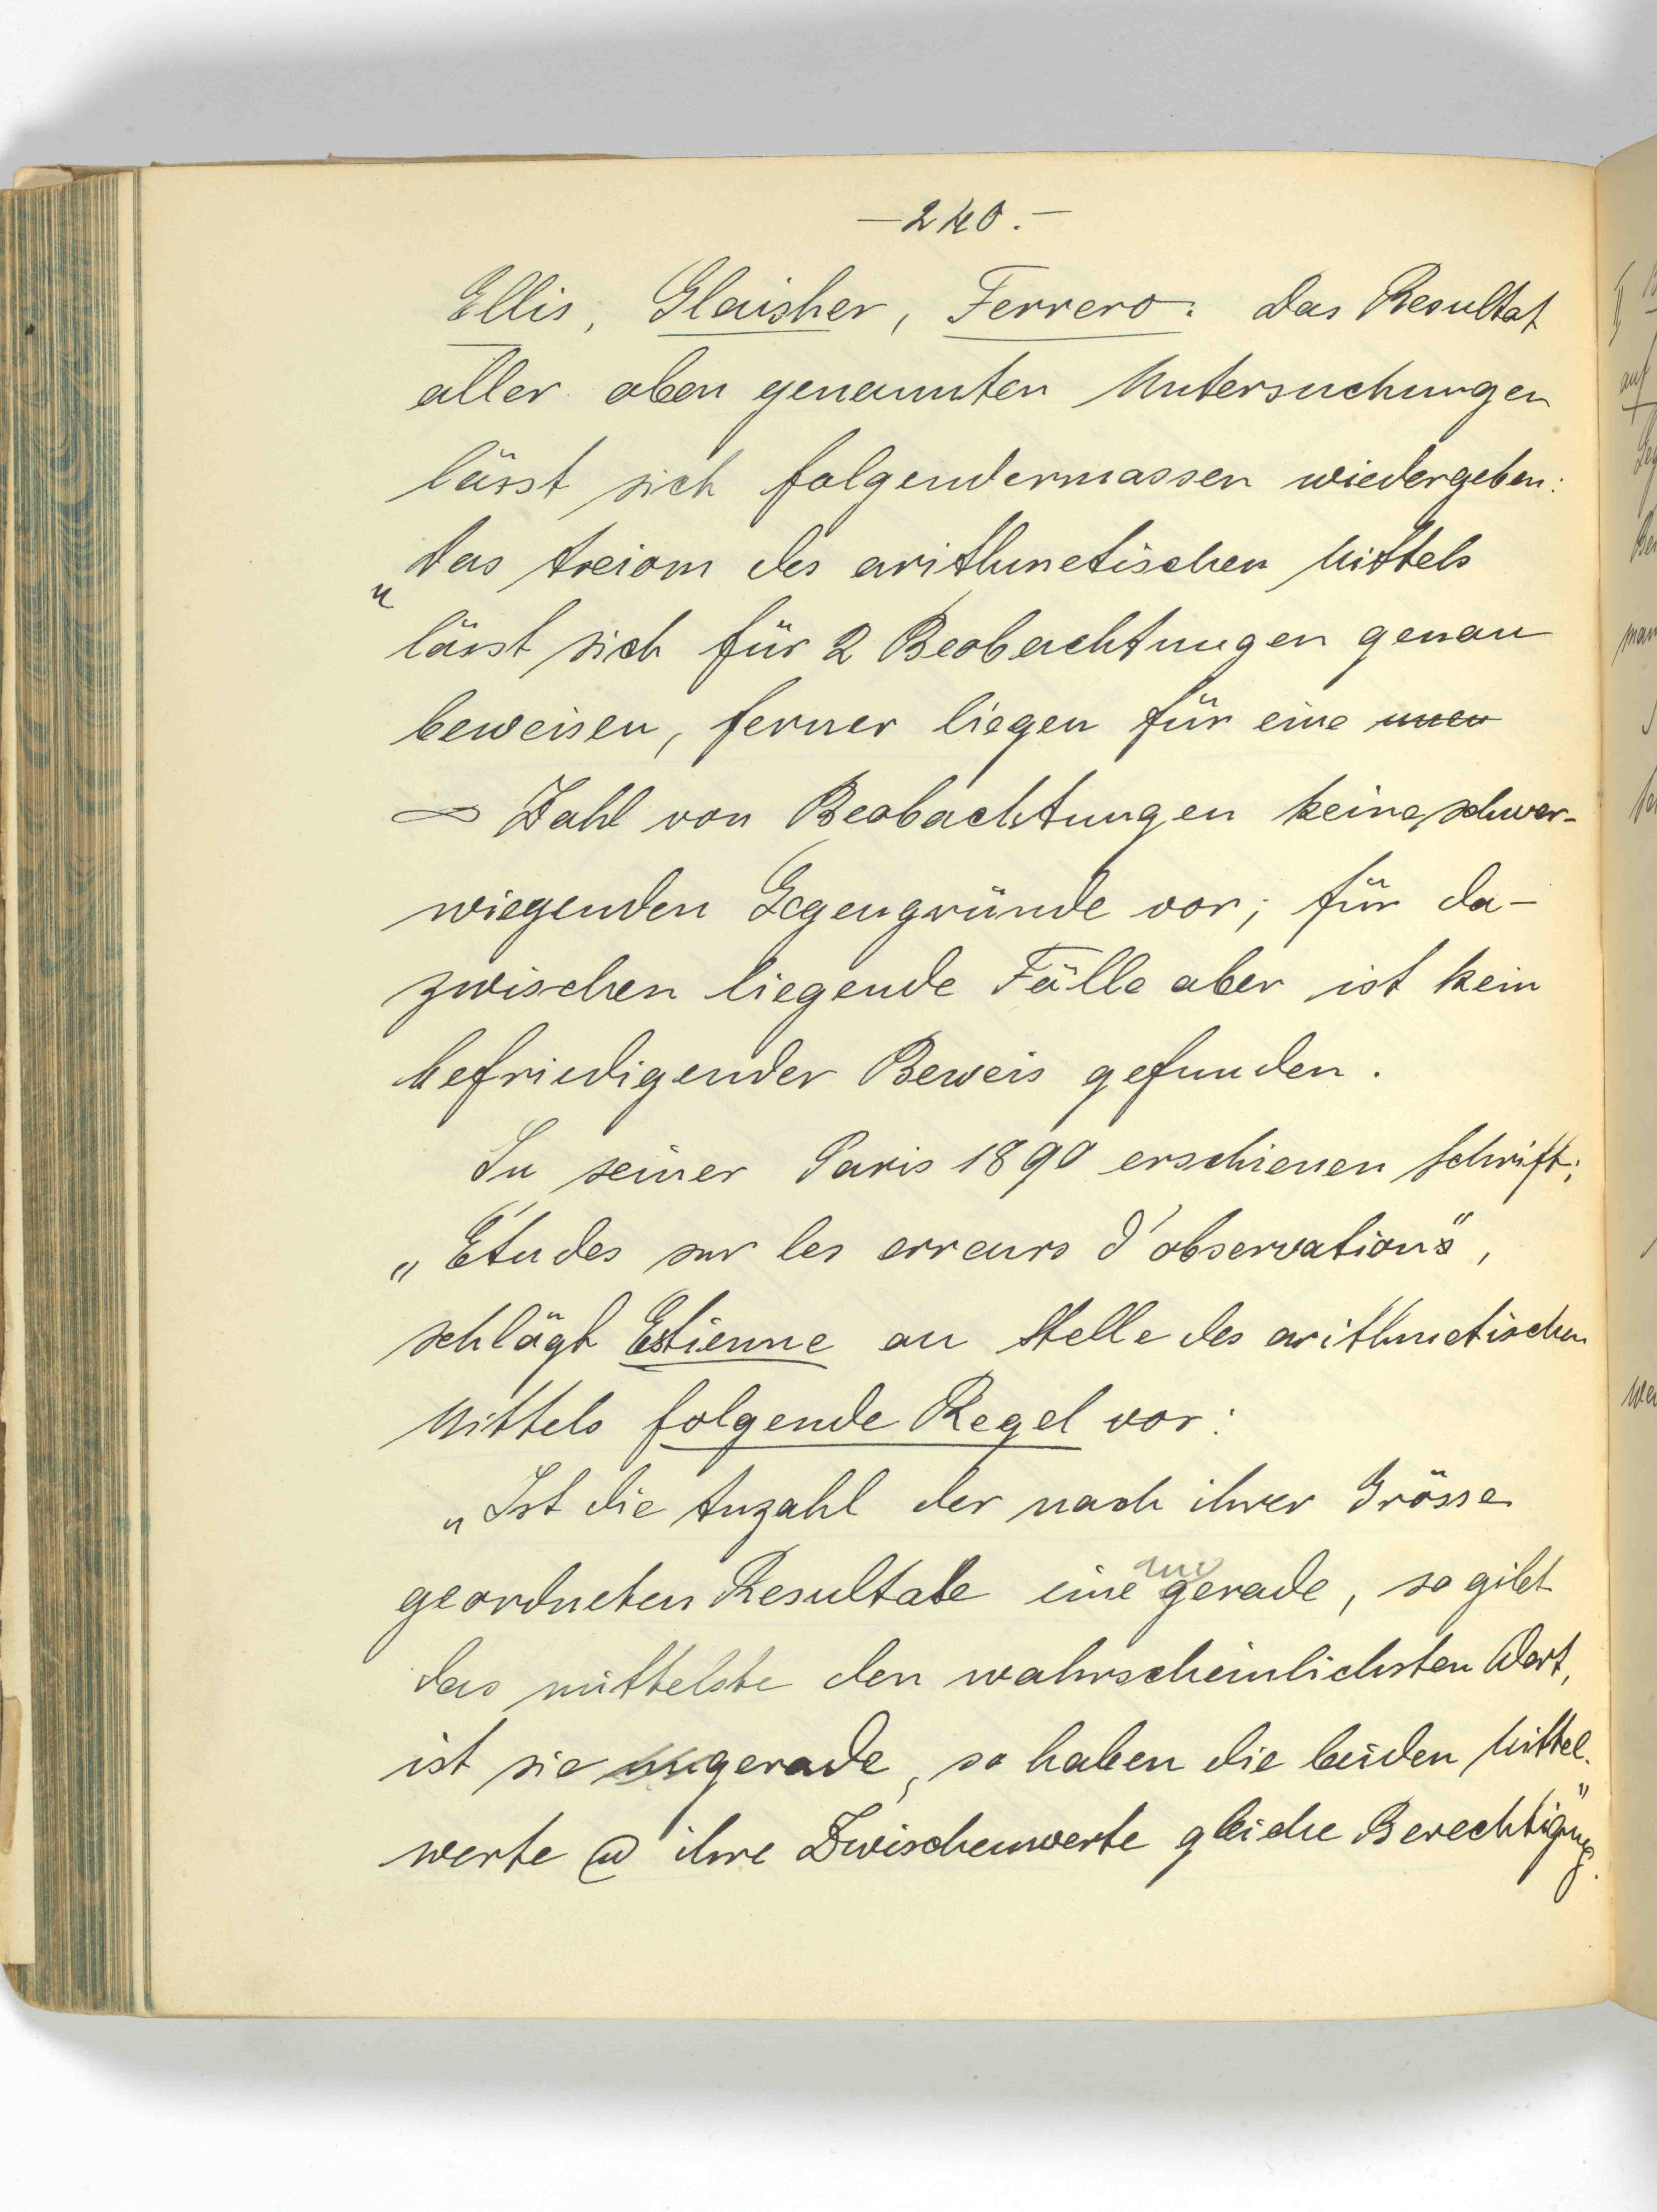 —240.—
Ellis, Glaisher, Ferrero. Das Resultat
aller oben genannten Untersuchungen
lässt sich folgendermassen wiedergeben:
„Das Axiom des arithmetischen Mittels
lässt sich für 2 Beobachtungen genau
beweisen, ferner liegen für eine unen
∞ Zahl von Beobachtungen keine schwer-
wiegenden Gegengründe vor; für da-
zwischen liegende Fälle aber ist kein
befriedigender Beweis gefunden.
In seiner Paris 1890 erschienen Schrift;
„Études sur les erreurs d'observations",
schlägt Estienne an Stelle des arithmetischen
Mittels folgende Regel vor:
„Ist die Anzahl der nach ihrer Grösse
geordneten Resultate eine un gerade, so gibt
das mittelste den wahrscheinlichsten Wert,
ist sie ungerade, so haben die beiden Mittel-
werte u ihre Zwischenwerte gleiche Berechtigung."